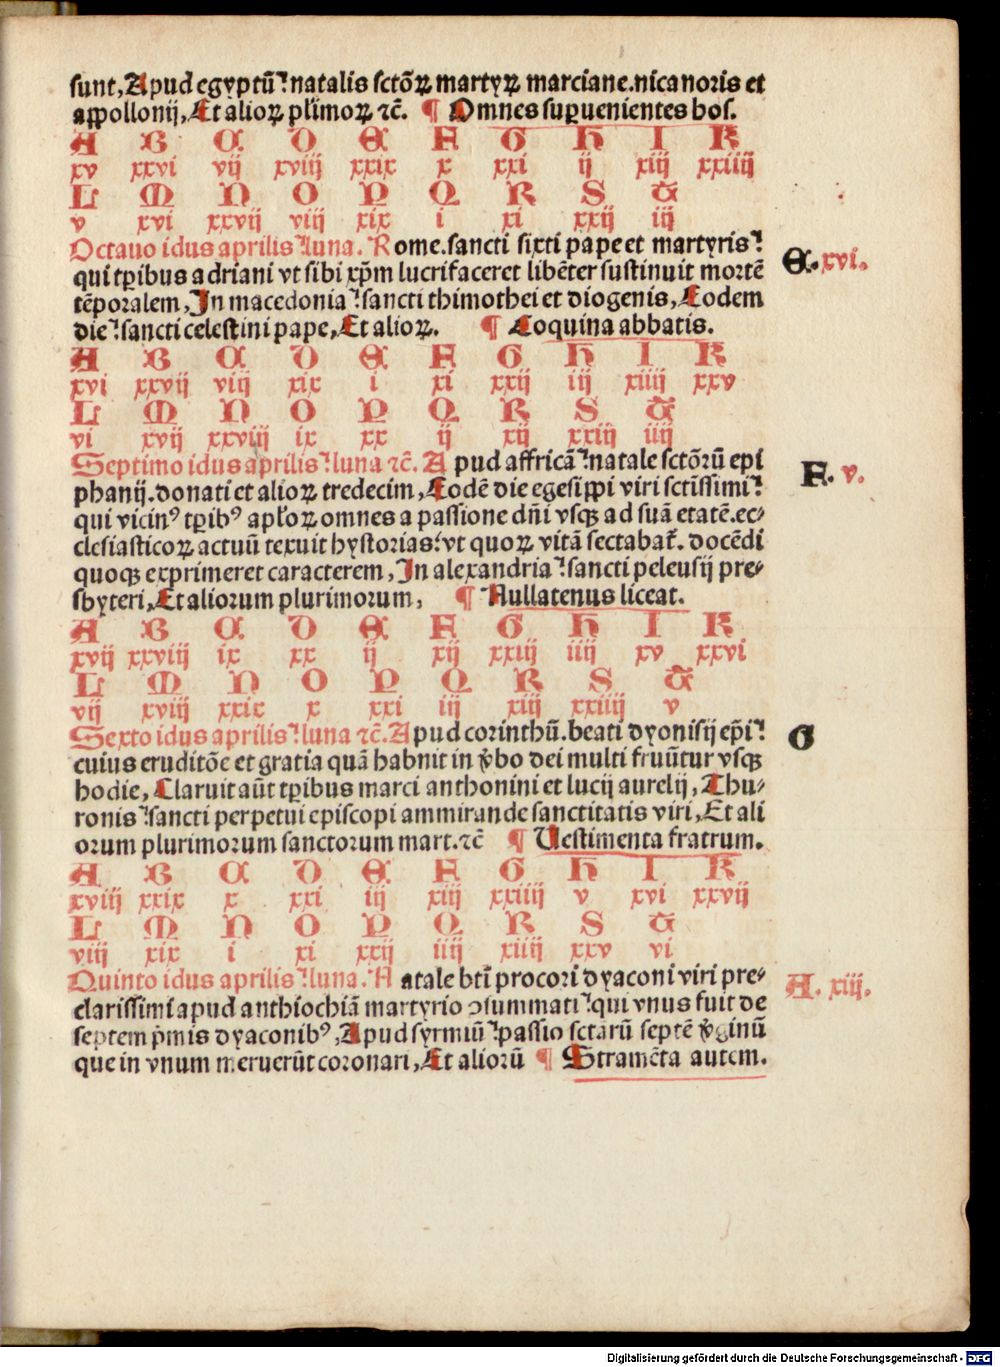 sunt, Apud egyptū: natalis sctōꝝ martyꝝ marciane. nicanoris et
appollonij, Et alioꝝ plimoꝝ ⁊c̄. ¶ Omnes supuenientes hos.
A B C D E F G H I K
xv xxvi vij xviij xxix x xxi ij xiij xxiiij
L M N O P Q R S T
v xvi xxvij viij xix i xi xxij iij
Octauo idus aprilis: luna. Rome. sancti sixti pape et martyris:
qui tꝑibus adriani vt sibi xp̄m lucrifaceret libēter sustinuit mortē
tēporalem, In macedonia: sancti thimothei et diogenis, Eodem
die: sancti celestini pape, Et alioꝝ. ¶ Coquina abbatis.
E. xvi.
A B C D E F G H I K
xvi xxvij viij xix i xi xxij iij xiiij xxv
L M N O P Q R S T
vi xvij xxviij ix xx ij xij xxiij iiij
Septimo idus aprilis: luna ⁊c̄. Apud affricā: natale sctōrū epi
phanij. donati et alioꝝ tredecim, Eodē die egesippi viri sctīssimi:
qui vicinꝰ tꝑibꝰ apl'oꝝ omnes a passione dn̄i vsqꝫ ad suā etatē. ec-
clesiasticoꝝ actuū texuit hystorias: vt quoꝝ vitā sectabat̄. docēdi
quoqꝫ exprimeret caracterem, In alexandria: sancti peleusij pre-
sbyteri, Et aliorum plurimorum, ¶ Nullatenus liceat.
F. v.
A B C D E F G H I K
xvij xxviij ix xx ij xij xxiij iiij xv xxvi
L M N O P Q R S T
vij xviij xxix x xxi iij xiij xxiiij v
Sexto idus aprilis: luna ⁊c̄. Apud corinthū. beati dyonisij ep̄i:
cuius eruditōe et gratia quā habnit in v̄bo dei multi fruūtur vsqꝫ
hodie, Claruit aūt tꝑibus marci anthonini et lucij aurelij, Thu-
ronis: sancti perpetui episcopi ammirande sanctitatis viri, Et ali
orum plurimorum sanctorum mart. ⁊c̄ ¶ Vestimenta fratrum.
G
A B C D E F G H I K
xviij xxix x xxi iij xiij xxiiij v xvi xxvij
L M N O P Q R S T
viij xix i xi xxij iiij xiiij xxv vi
Quinto idus aprilis: luna. Natale bt̄i procori dyaconi viri pre-
clarissimi apud anthiochiā martyrio ꝯsummati: qui vnus fuit de
septem p̄mis dyaconibꝰ, Apud syrmiū: passio sctarū septē v̄ginū
que in vnum meruerūt coronari, Et aliorū ¶ Stramēta autem.
A. xiij.
Digitalisierung gefördert durch die Deutsche Forschungsgemeinschaft - DFG